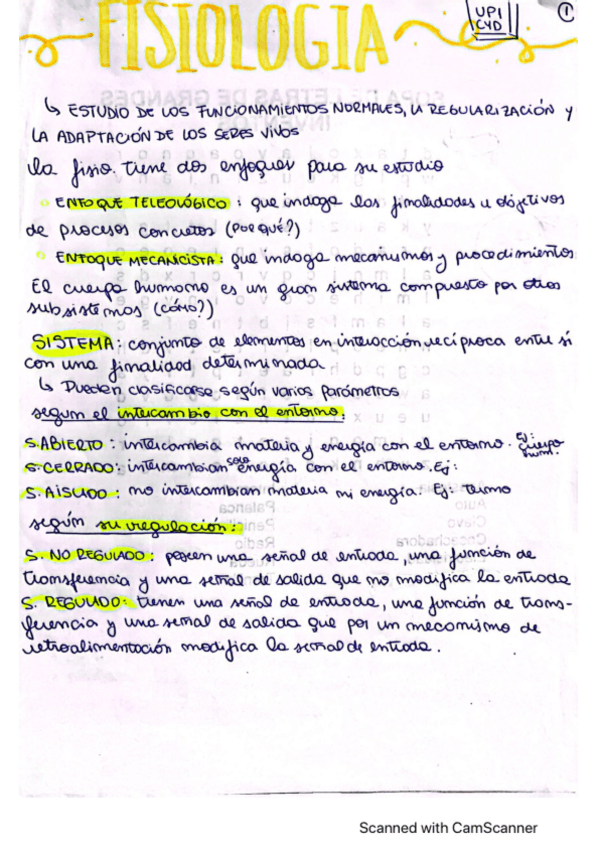 FISIOLOGIA
UPI
C4D
1
↳ ESTUDIO DE LOS FUNCIONAMIENTOS NORMALES, LA REGULARIZACIÓN Y
LA ADAPTACIÓN DE LOS SERES VIVOS
La fisio. tiene dos enfoques para su estudio
ENFOQUE TELEOLÓGICO: que indaga las finalidades u objetivos
de procesos concretos (POR QUÉ?)
ENFOQUE MECANCISTA: que indaga mecanismos y procedimientos
El cuerpo humano es un gran sistema compuesto por otros
subsistemas (CÓMO?)
SISTEMA: conjunto de elementos en interacción recíproca entre sí
con una finalidad determinada
↳ Pueden clasificarse según varios parámetros
según el intercambio con el entorno:
S. ABIERTO: intercambia materia y energía con el entorno. Ej: cuerpo hum.
S. CERRADO: intercambian solo energía con el entorno. Ej:
S. AISLADO: no intercambian materia ni energía. Ej: termo
según su regulación:
S. NO REGULADO: poseen una señal de entrada, una función de
transferencia y una señal de salida que no modifica la entrada
S. REGULADO: tienen una señal de entrada, una función de trans-
ferencia y una señal de salida que por un mecanismo de
retroalimentación modifica la señal de entrada.
Scanned with CamScanner